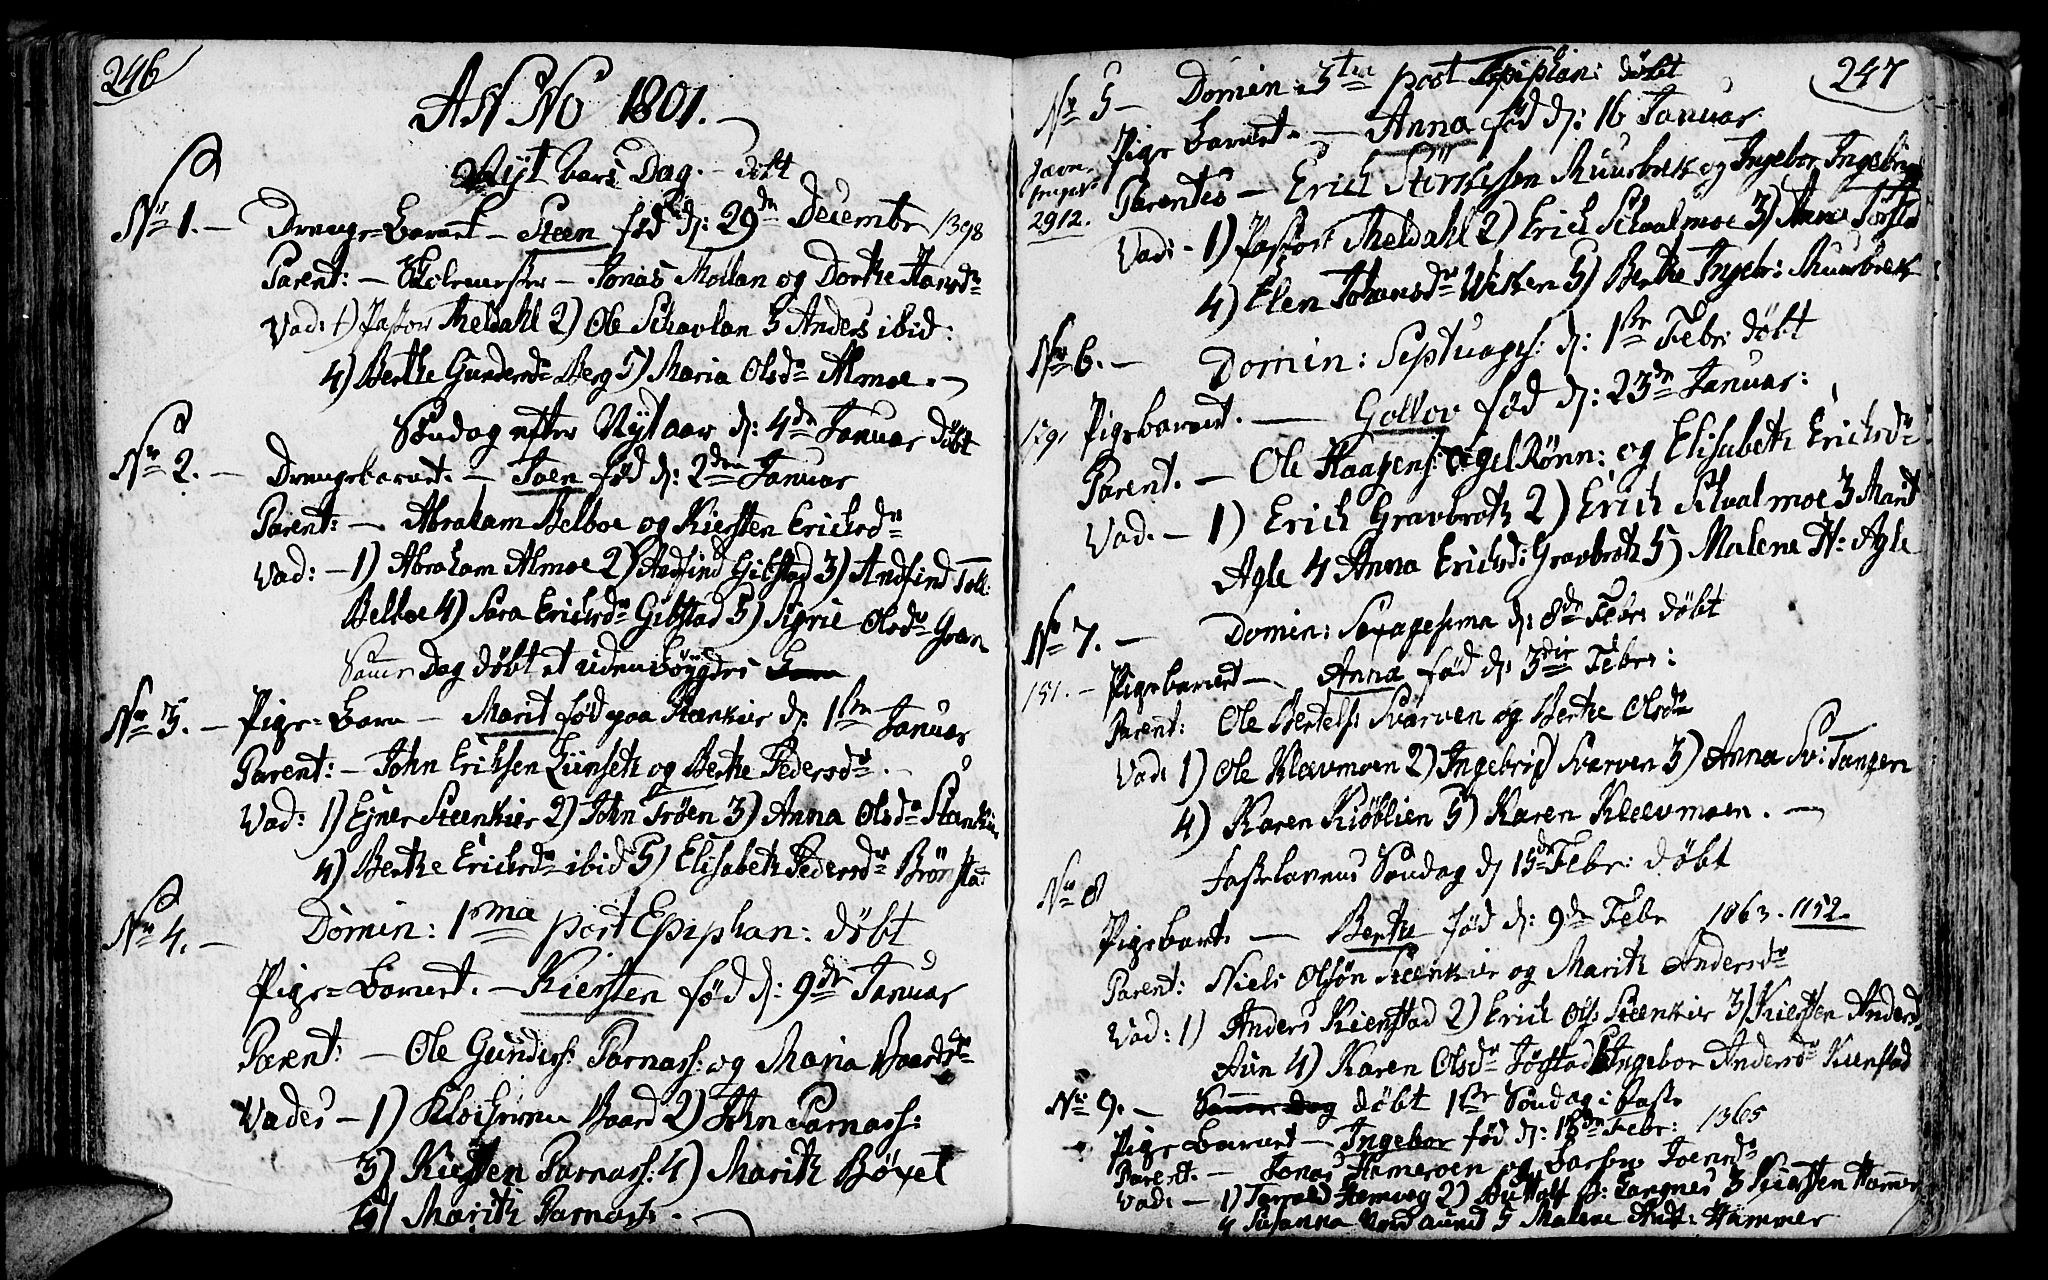 246
ANNO 1801.
Nyt Aars Dag. - døbt
No 1. - Drenge=Barnet - Steen fød d: 29de Decembr 1398
Parent: - Skolemester - Jonas Mollan og Dorthe Hansdr
Vad: 1) Pastor Meldahl 2) Ole Schavlan 3 Anders ibid:
4) Berthe Gundersdr Berg 5) Maria Olsdr Almoe. -
Søndag efter Nytaar d: 4de Januar døbt
No 2. - Drengebarnet. - Joen fød d: 2den Januar
Parent: - Abraham Belboe og Kiersten Erichsdr
Vad: - 1) Abraham Almoe 2) Andfind Gibstad 3) Andfind Toll:
Belboe 4) Sara Erichsdr Gibstad 5) Sigrie Olsdr Gran
Samme Dag døbt et udenbøygdes
No 3. - Pige=Barn - Marit fød paa Steenkier d: 1ste Januar
Parent: - John Eriksen Lünseth og Berthe Pedersdr. -
Vad: 1) Ejner Steenkier 2) John Trøen 3) Anna Olsdr Steenkier
4) Berthe Erichsdr ibid 5) Elisabeth Pedersdr Brønsta:
No 4. - Domin: 1ma post Epiphan: døbt
Pige=Barnet. - Kiersten fød d: 9de Januar
Parent: - Ole Gunders: Parnass: og Maria Baardsdr
Vades - 1) Klocheren Baard 2) John Parnass:
3) Kiersten Parnass: 4) Marith Bøxet
5) Marith Parnass. -
247
No 5 - Domin: 3tia post Epiphan: døbt
Pige Barnet. - Anna fød d: 16 Januar
2912. Parentes - Erich Størkersen Muurbrek og Ingebor Ingebrigs
Vad: - 1) Pastor Meldahl 2) Erich Schaalmoe 3) Anne Førstad
4) Elen Johansdr Wiken 5) Berthe Ingebr: Muurbrek
No 6. - Domin: Septuages: d: 1ste Febr: døbt
Pigebarnet. - Gollov fød d: 23de Januar:
Parent. - Ole Haagens: Ogel Rönn: og Elisabeth Erichsdr
Vad. - 1) Erich Gravbroth 2) Erich Schaalmoe 3 Marit
Agle 4 Anna Erichsd: Gravbroth 5) Malene H: Agle
No 7. - Domin: Sexagesima d: 8de Febr: døbt
151. - Pigebarnet - Anna fød d: 3die Febr:
Parent: Ole Bertels: Svarven og Berthe Olsdr
Vad: 1) Ole Klavmoen 2) Ingebrigt Svarven 3) Anna Sv: Tangen
4) Karen Kiøblien 5) Karen Kleevmoen. -
No 8 Fastelavens Søndag d 15de Febr: døbt
Pigebart. - Berthe fød d: 9de Febr 1063. 1152.
Parent: Niels Olsøn Steenkier og Marith Andersdr
Vad: 1) Anders Kienstad 2) Erich Ols Steenkier 3) Kiersten Andersd.
Aün 4) Karen Olsdr Førstad 5 Ingebor Andersdr Kienstad
No 9. - Samme Dag døbt 1ste Søndag i Faste
Pige Barnet - Ingebor fød d: 18de Febr: 1365
Parent. - Jonas Hameroen og Joensdr
Vad: - 1) 2) P: 3 Kiersten Hammer
4 Susanna 5 Malene And: Hammer